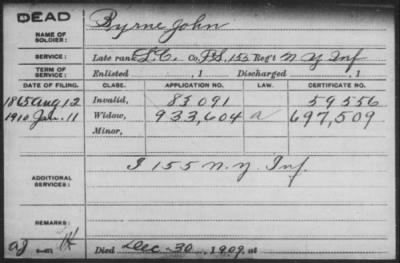 DEAD
NAME OF SOLDIER: Byrne John
SERVICE: Late rank L.C. Co. F.S., 155 Reg't N Y Inf
TERM OF SERVICE: Enlisted , 1 Discharged , 1
DATE OF FILING. CLASS. APPLICATION NO. LAW. CERTIFICATE NO.
1865 Aug 12 Invalid, 83091 59556
1910 Jan. 11 Widow, 933,604 a 697,509
Minor,
ADDITIONAL SERVICES: I 155 N.Y. Inf.
REMARKS:
Died Dec-30, 1909, at